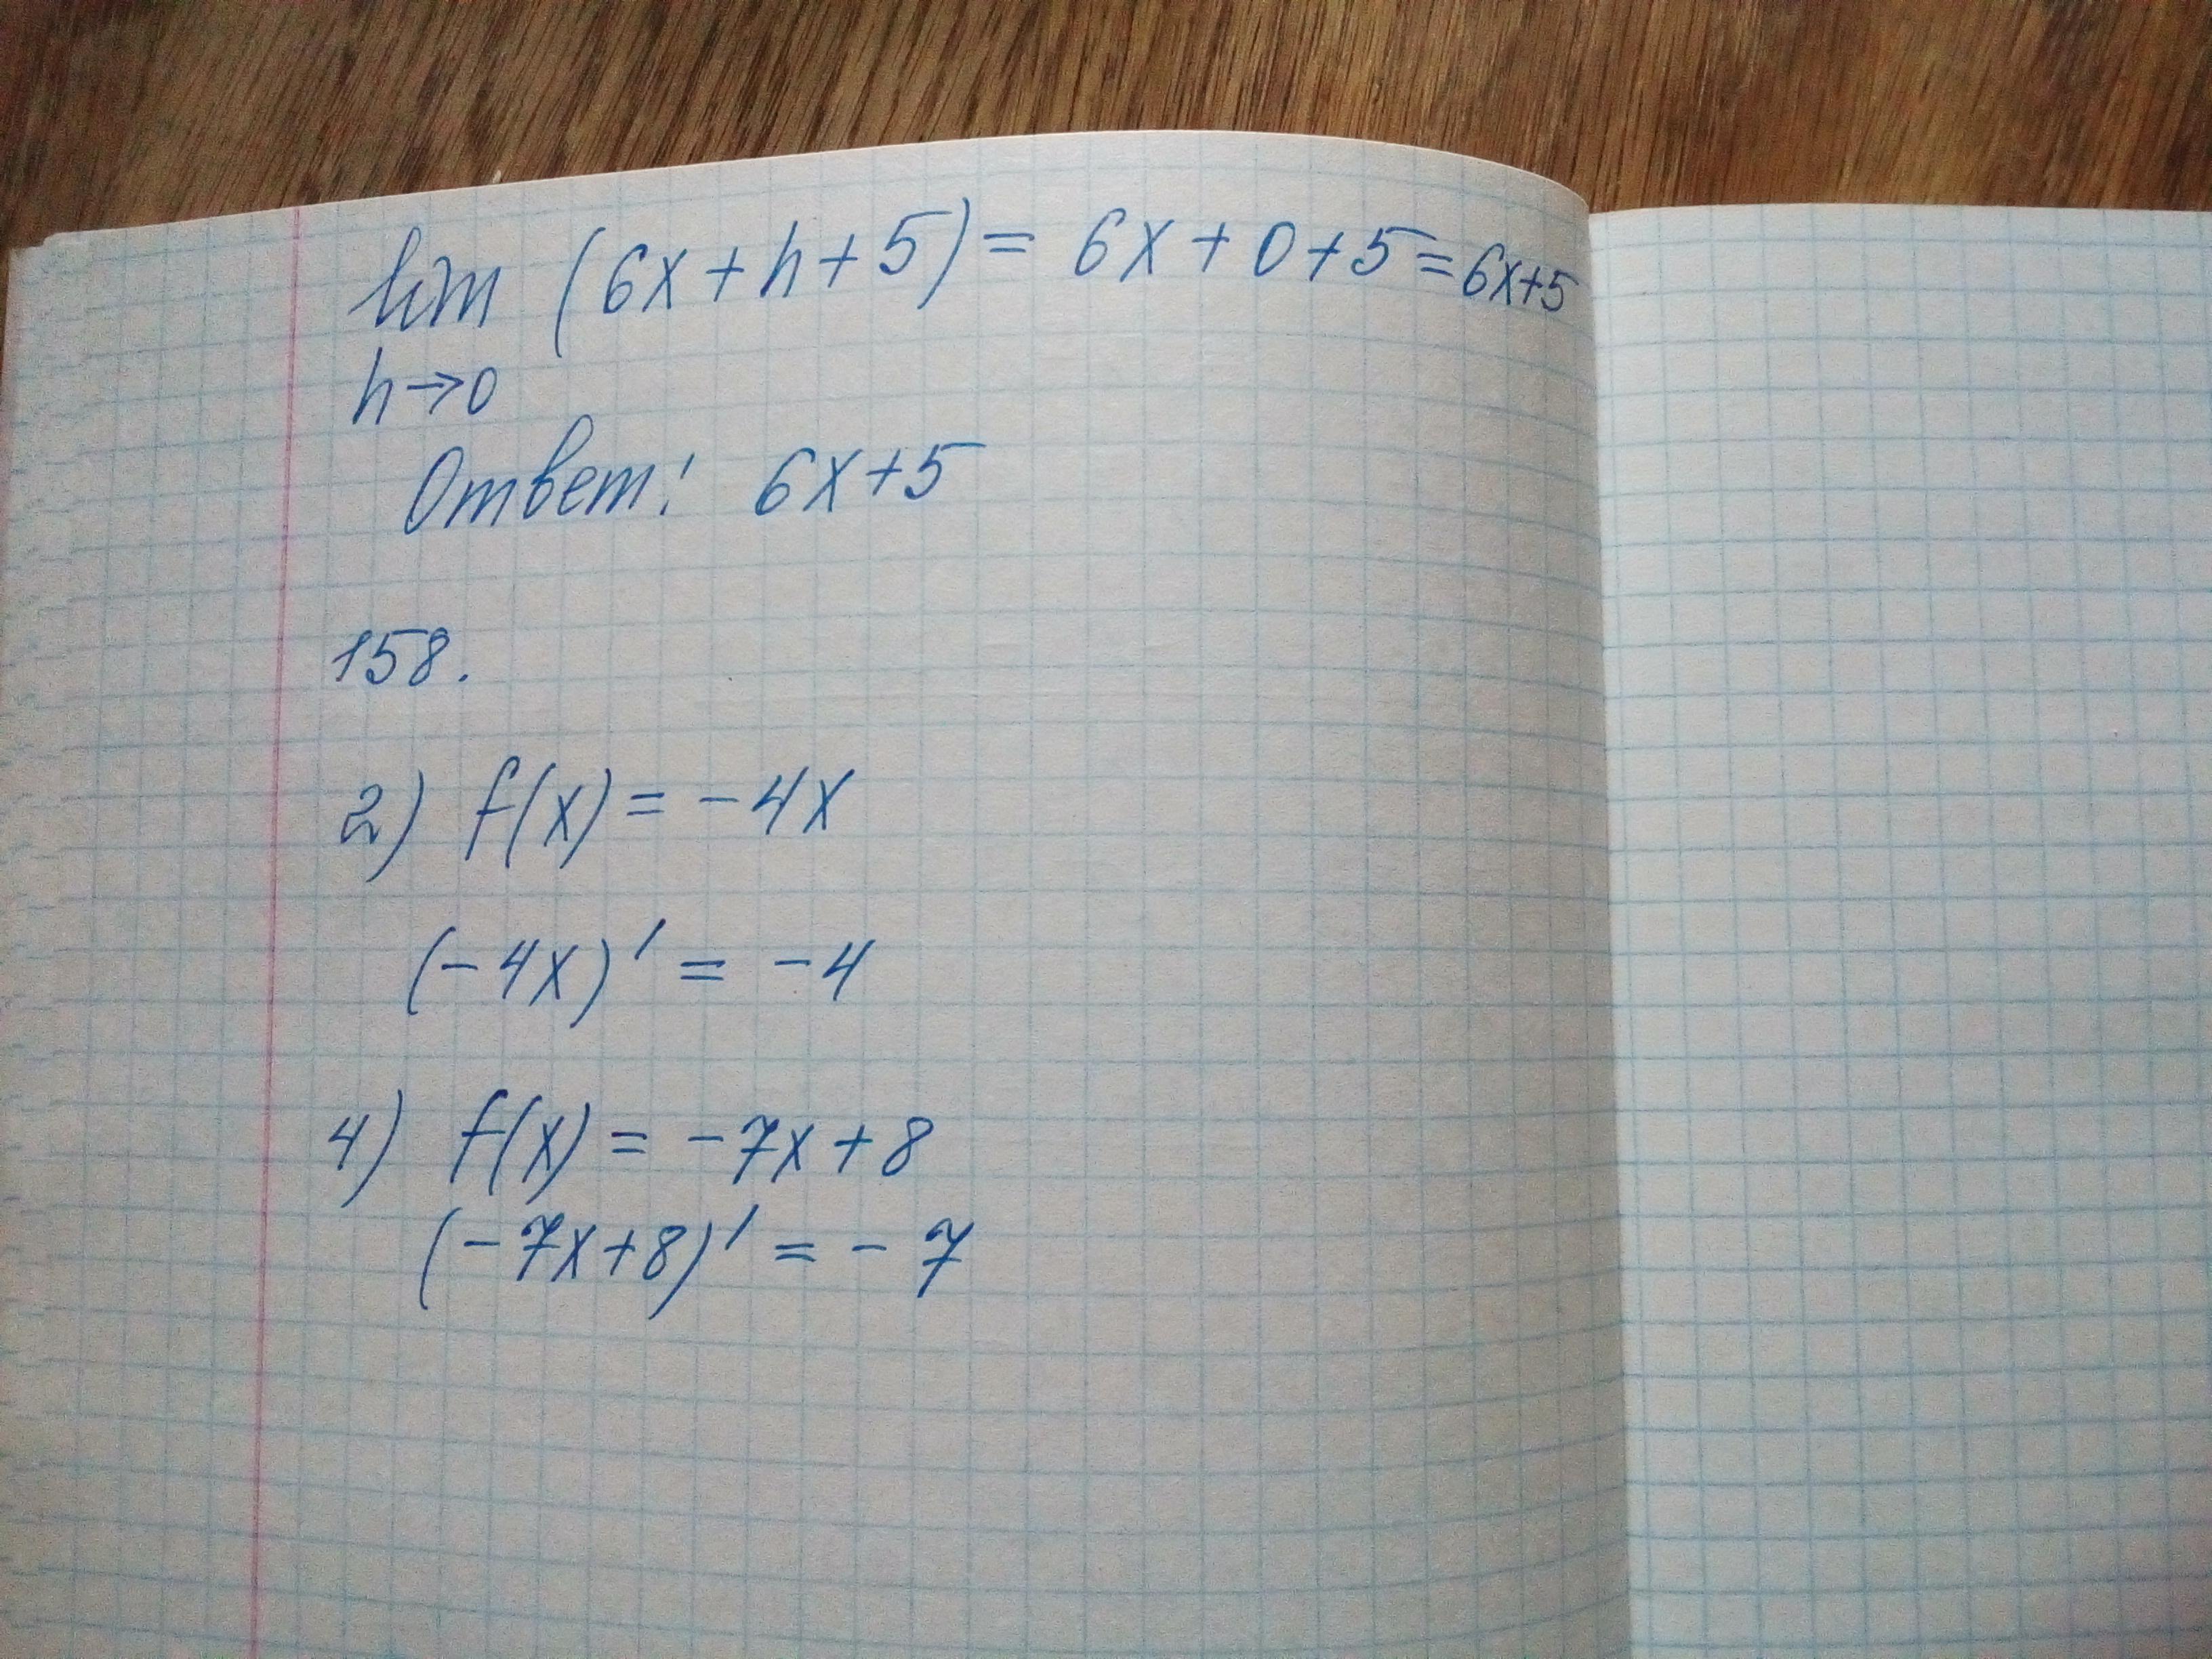 lim (6x + h + 5) = 6x + 0 + 5 = 6x+5
h→0
Ответ: 6x+5
158.
2) f(x) = -4x
(-4x)' = -4
4) f(x) = -7x + 8
(-7x+8)' = -7